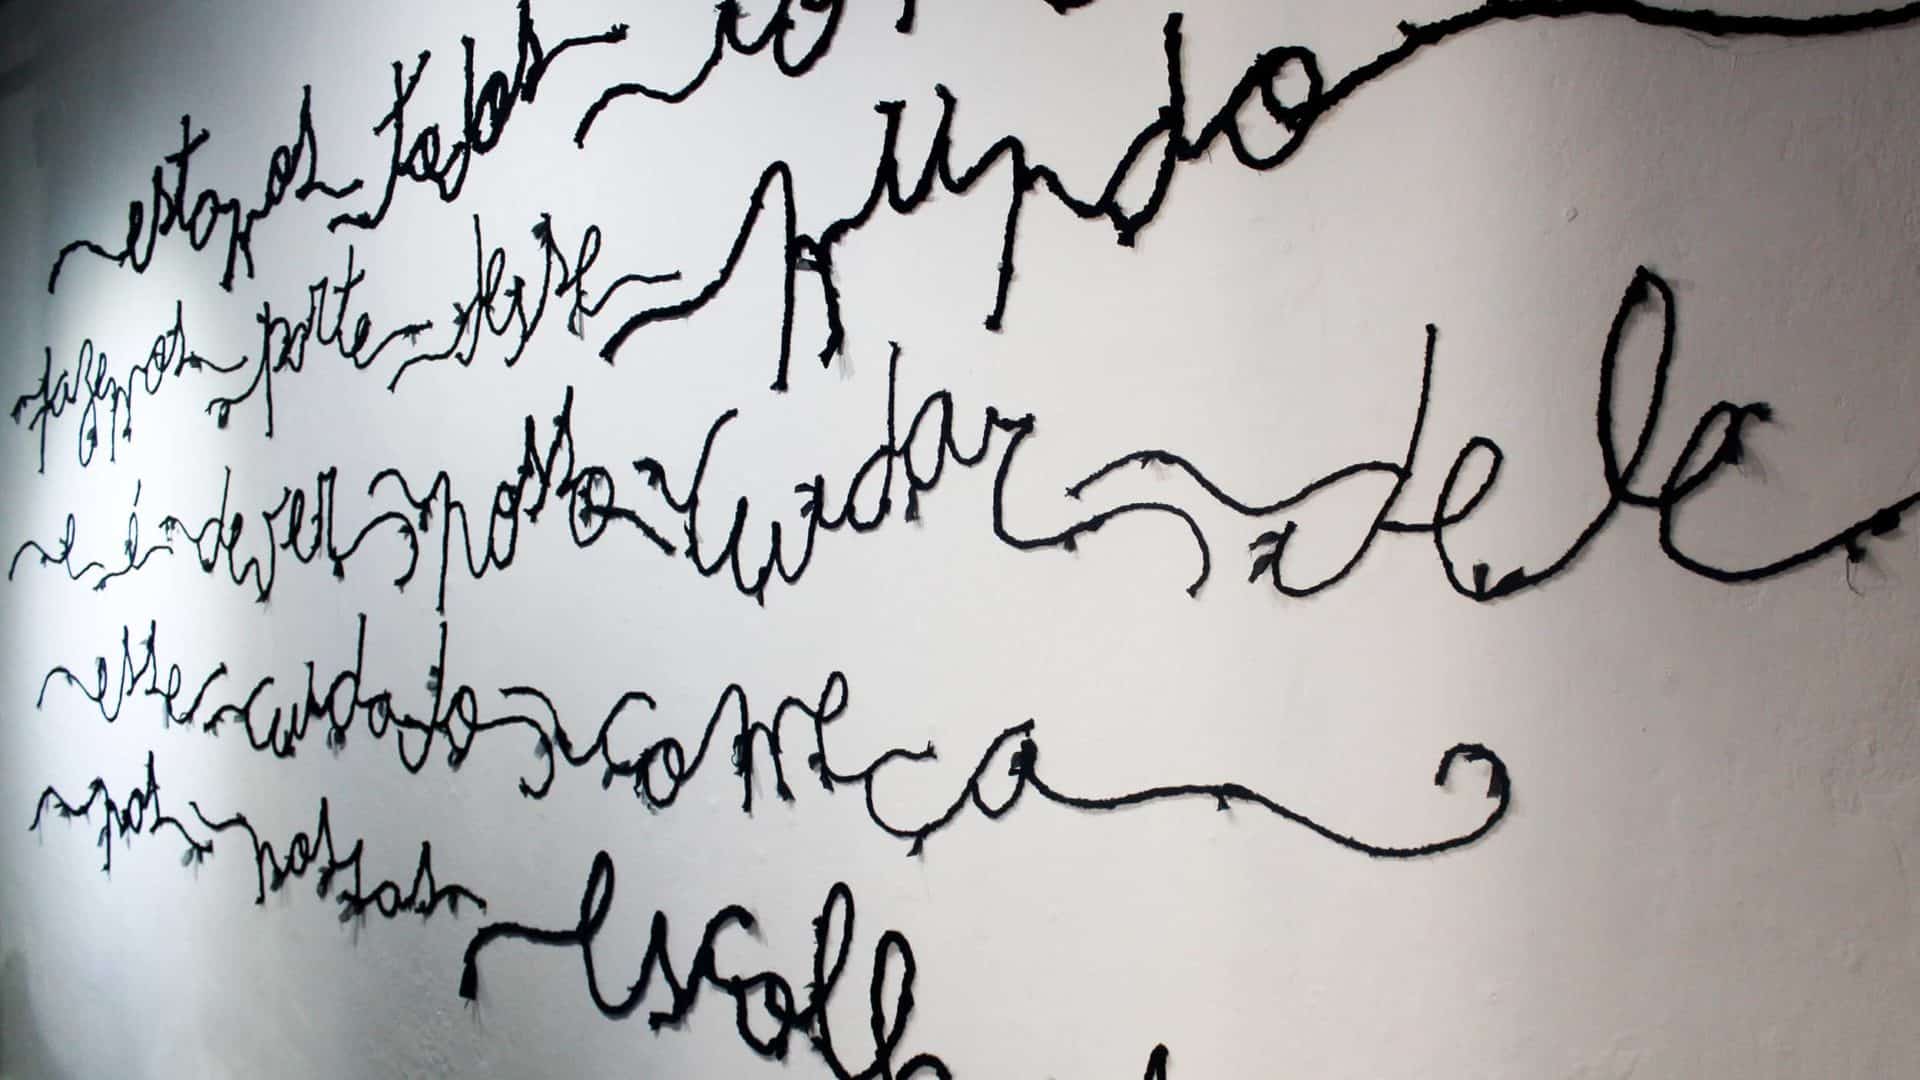 estamos todos co
fazemos parte desse mundo
e é dever nosso cuidar dele
esse cuidado começa
nas nossas escolh